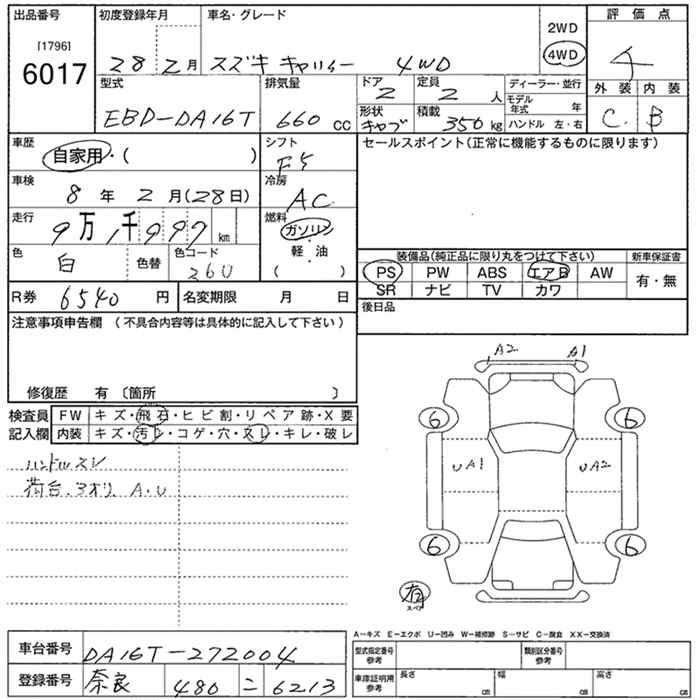 出品番号 初度登録年月 車名・グレード 評価点
[1796]
6017
28 2月 スズキ キャリイー 4WD
2WD
4WD
4
型式 排気量 ドア 定員 ディーラー・並行 外装 内装
EBD-DA16T 660 CC 2 2 人 モデル年式 年
形状 積載 ハンドル 左・右
キャブ 350 kg C B
車歴 シフト セールスポイント(正常に機能するものに限ります)
自家用・( ) F5
車検 冷房
8年 2月(28日) AC
走行 燃料
9万1千997 km ガソリン
軽・油
( )
色 色替 色コード
白 26U
装備品(純正品に限り丸をつけて下さい) 新車保証書
PS PW ABS エアB AW 有・無
SR ナビ TV カワ
R券 6540円 名変期限 月 日
後日品
注意事項申告欄 (不具合内容等は具体的に記入して下さい)
修復歴 有〔箇所 〕
検査員 FW キズ・飛石・ヒビ割・リペア跡・X要
記入欄 内装 キズ・汚レ・コゲ・穴・スレ・キレ・破レ
ハンドルスレ
荷台、3オリ A.U
A2 A1
6 6
UA1 UA2
6 6
有
スペア
A-キズ E-エクボ U-凹み W-補修跡 S-サビ C-腐食 XX-交換済
車台番号 DA16T-272004
型式指定番号 参考 類別区分番号 参考
登録番号 奈良 480 ニ 6213
車庫証明用 参考 長さ cm 幅 cm 高さ cm